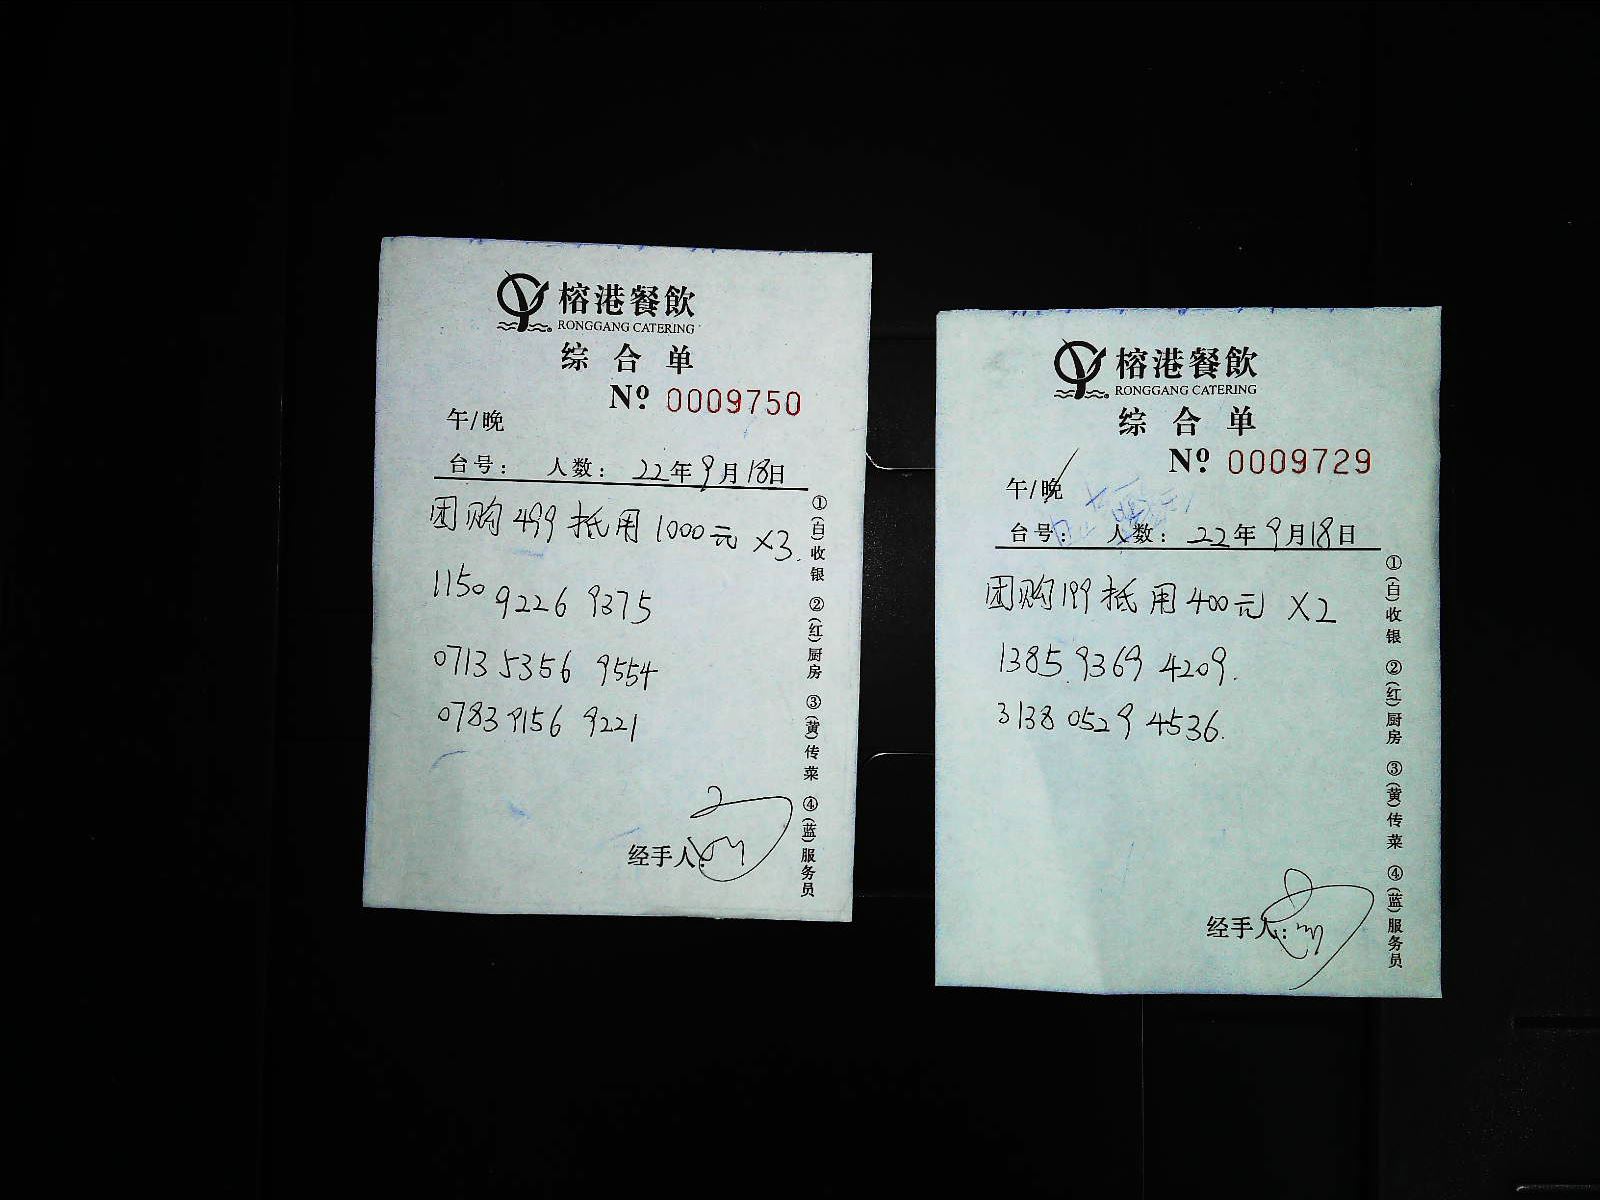 榕港餐飲
RONGGANG CATERING
综合单
Nº 0009750
午/晚
台号: 人数: 22年9月18日
团购499抵用1000元 ×3.
1150 9226 9375
0713 5356 9554
0783 9156 9221
经手人:
①(白)收银 ②(红)厨房 ③(黄)传菜 ④(蓝)服务员
榕港餐飲
RONGGANG CATERING
综合单
Nº 0009729
午/晚
台号: 人数: 22年9月18日
团购199抵用400元 ×2
1385 9369 4209.
3138 0529 4536.
经手人:
①(白)收银 ②(红)厨房 ③(黄)传菜 ④(蓝)服务员